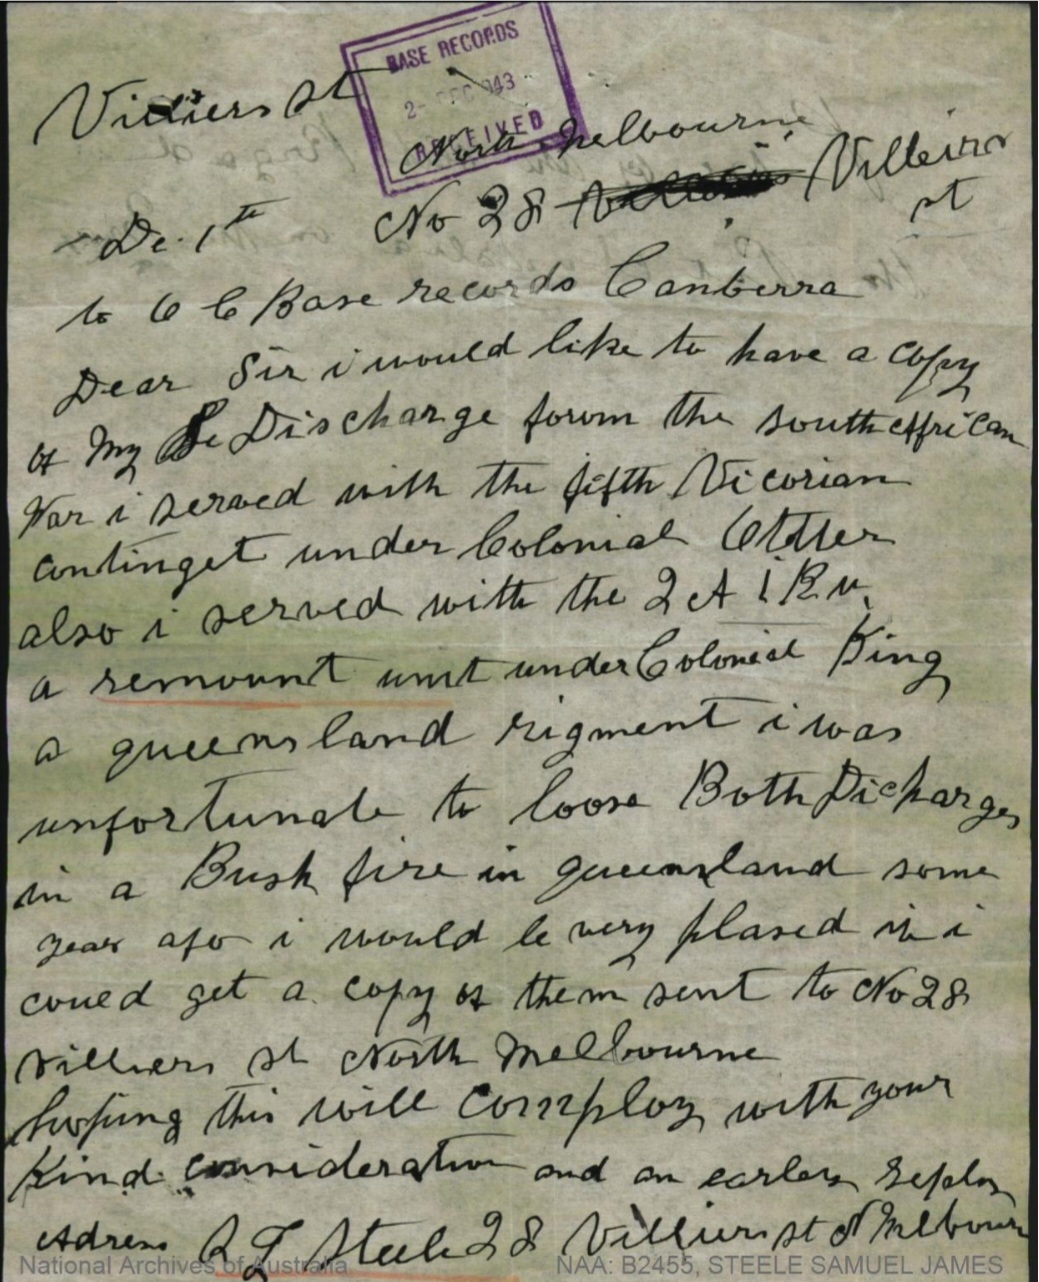 BASE RECORDS
2- DEC 1943
RECEIVED
Villiers st
North Melbourne
No 28 Villeirs
st
De. 1th
to O C Base records Canberra
Dear Sir i would like to have a copy
of My Discharge forom the south African
War i served with the fifth Vicorian
continget under Colonial Otter
also i served with the 2 A I R u.
a remount unit under Colonial King
a queensland rigment i was
unfortunate to loose Both Dicharges
in a Bush fire in queensland some
year ago i would be very plased if i
coued get a copy of them sent to No 28
Villiers st North Melbourne
hoping this will comploy with your
Kind consideration and an earley reploy
Adress S J Steele 28 Villiers st N Melbourn
National Archives of Australia
NAA: B2455, STEELE SAMUEL JAMES